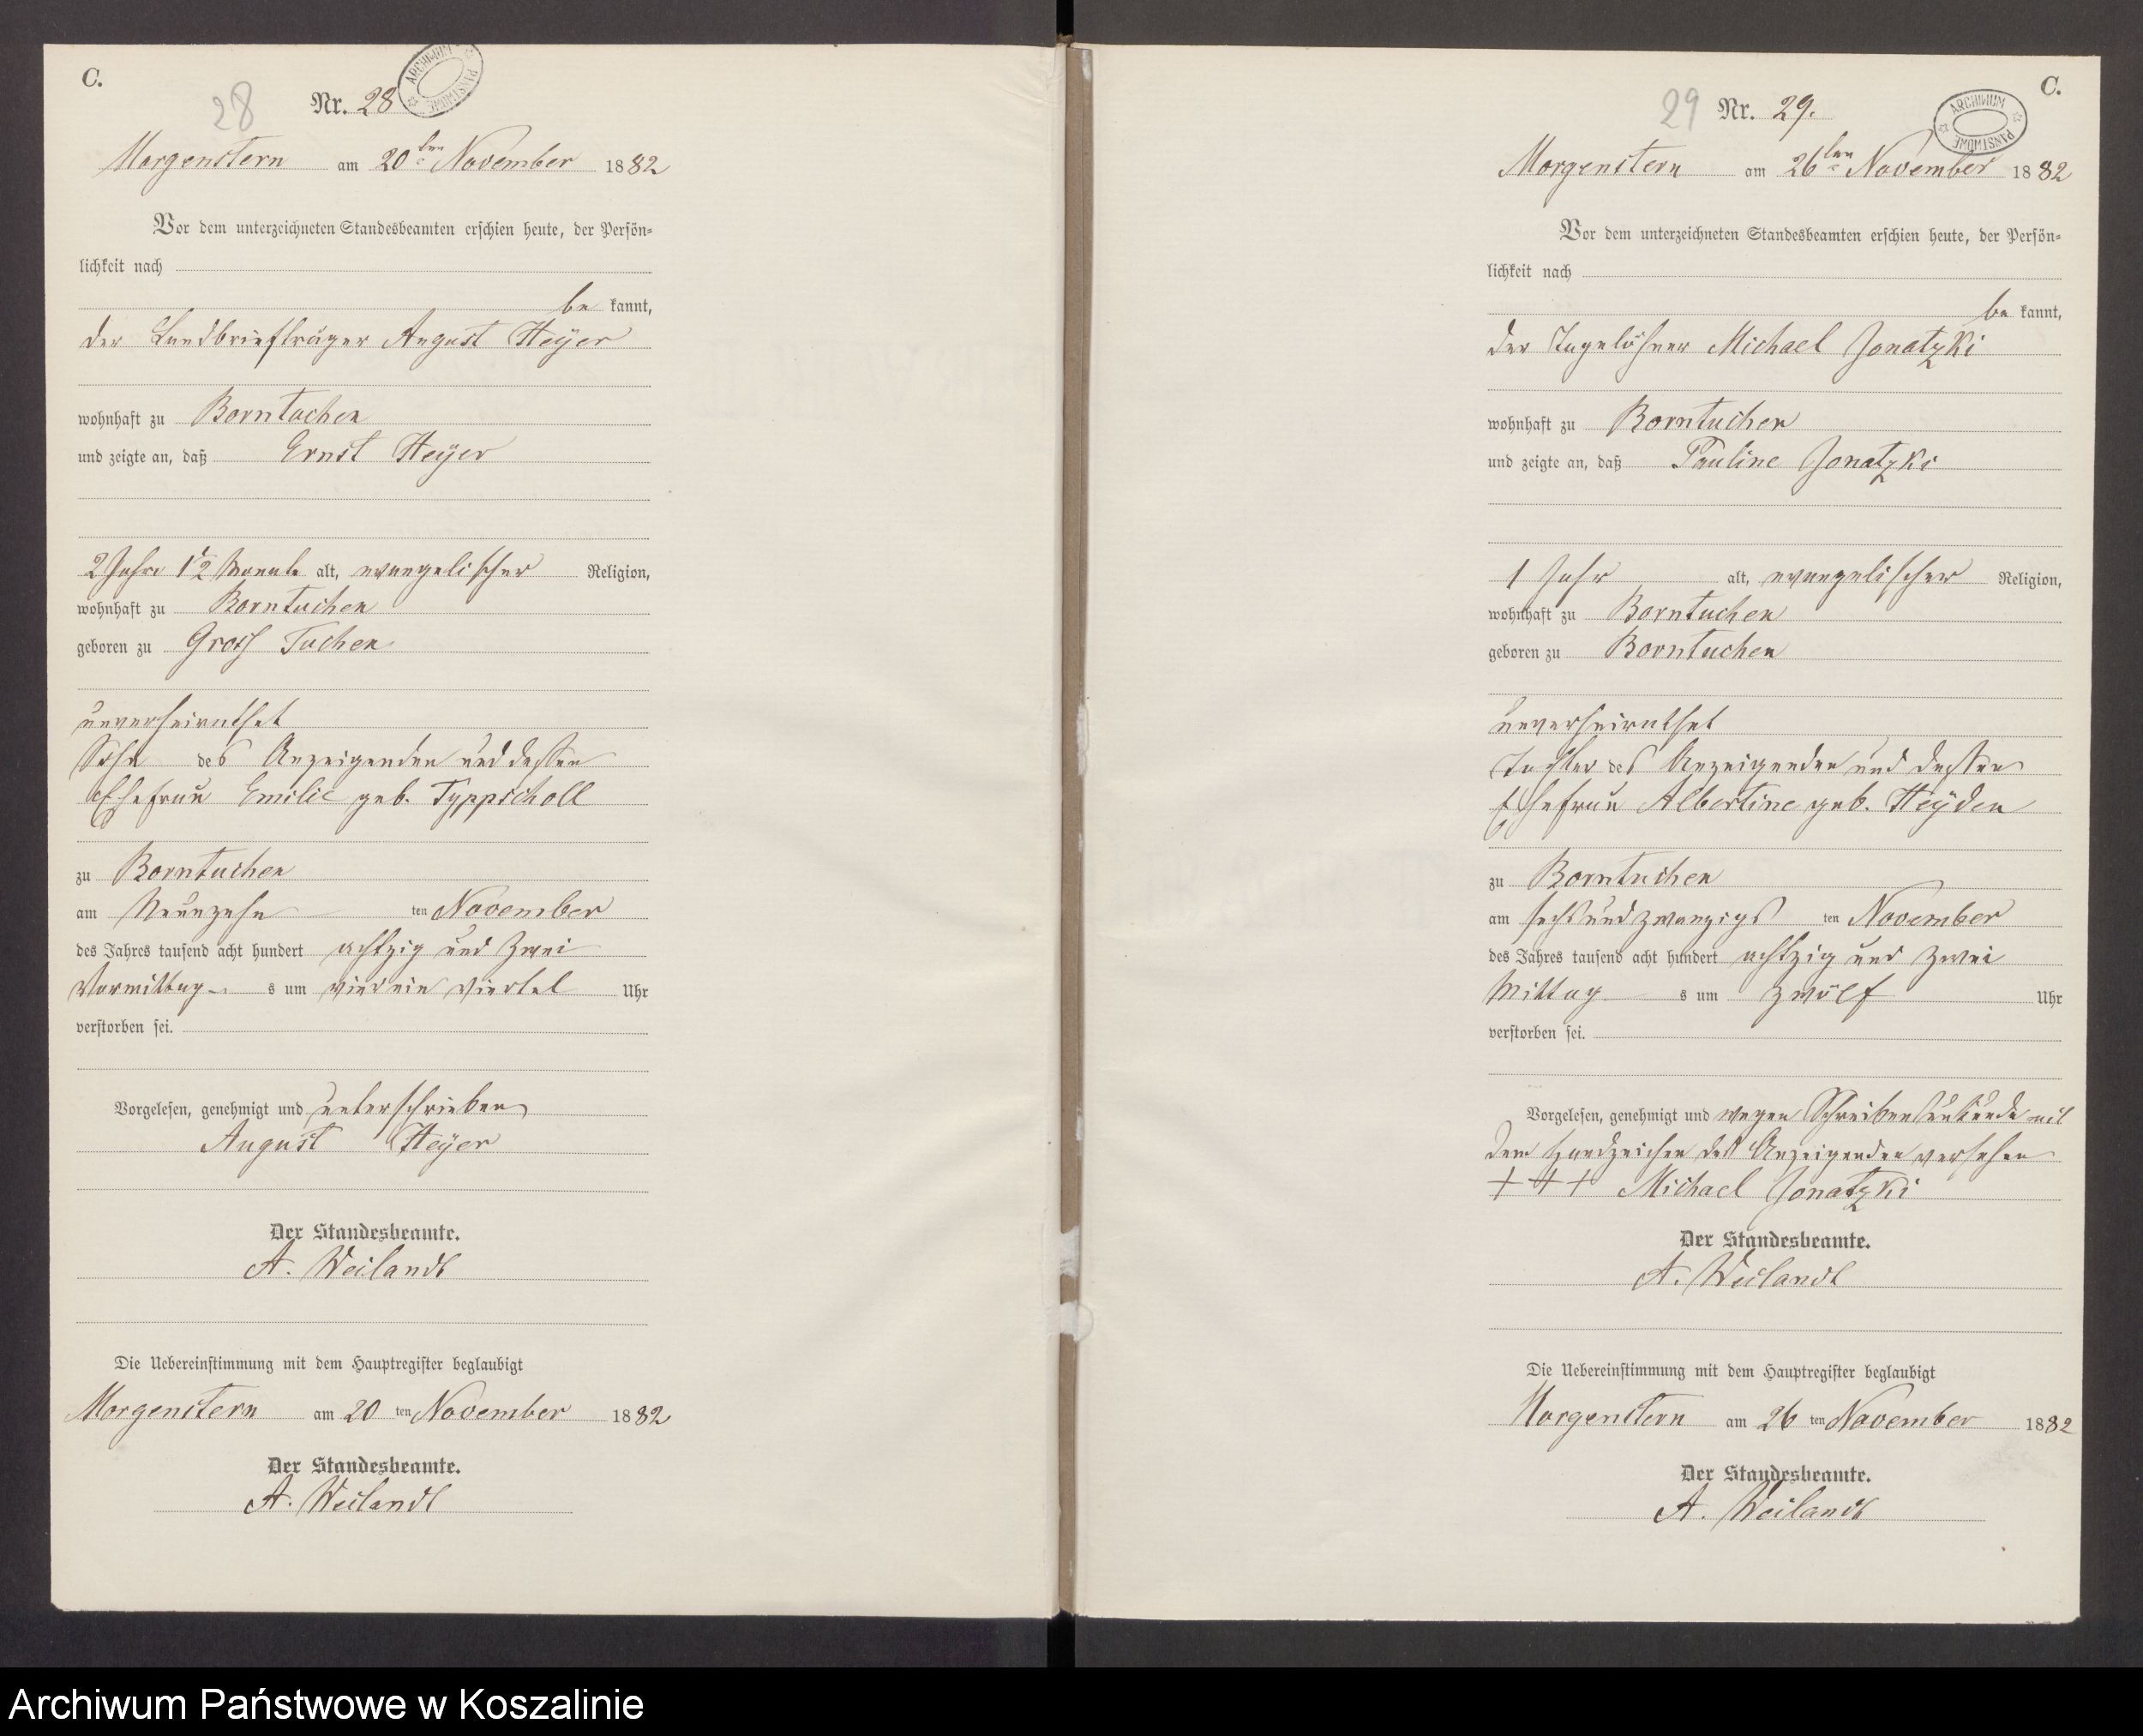 C.
28 Nr. 28
ARCHIWUM PAŃSTWOWE
Morgenstern am 20ten November 1882
Vor dem unterzeichneten Standesbeamten erschien heute, der Persön-
lichkeit nach
be kannt,
der Landbriefträger August Heyer
wohnhaft zu Borntuchen
und zeigte an, daß Ernst Heyer
2 Jahre 1½ Monate alt, evangelischer Religion,
wohnhaft zu Borntuchen
geboren zu Gross Tuchen
unverheirathet
Sohn des Anzeigenden und dessen
Ehefrau Emilie geb. Typpscholl
zu Borntuchen
am Neunzehn ten November
des Jahres tausend acht hundert achtzig und zwei
Vormittag s um vier ein viertel Uhr
verstorben sei.
Vorgelesen, genehmigt und unterschrieben
August Heyer
Der Standesbeamte.
A. Weilandt
Die Uebereinstimmung mit dem Hauptregister beglaubigt
Morgenstern am 20 ten November 1882
Der Standesbeamte.
A. Weilandt
C.
29 Nr. 29.
ARCHIWUM PAŃSTWOWE
Morgenstern am 26ten November 1882
Vor dem unterzeichneten Standesbeamten erschien heute, der Persön-
lichkeit nach
be kannt,
der Tagelöhner Michael Jonatzki
wohnhaft zu Borntuchen
und zeigte an, daß Pauline Jonatzki
1 Jahr alt, evangelischer Religion,
wohnhaft zu Borntuchen
geboren zu Borntuchen
unverheirathet
Tochter des Anzeigenden und dessen
Ehefrau Albertine geb. Heyden
zu Borntuchen
am sechs und zwanzigs ten November
des Jahres tausend acht hundert achtzig und zwei
Mittag s um zwölf Uhr
verstorben sei.
Vorgelesen, genehmigt und wegen Schreibensunkunde mit
dem Handzeichen des Anzeigenden versehen
+++ Michael Jonatzki
Der Standesbeamte.
A. Weilandt
Die Uebereinstimmung mit dem Hauptregister beglaubigt
Morgenstern am 26 ten November 1882
Der Standesbeamte.
A. Weilandt
Archiwum Państwowe w Koszalinie